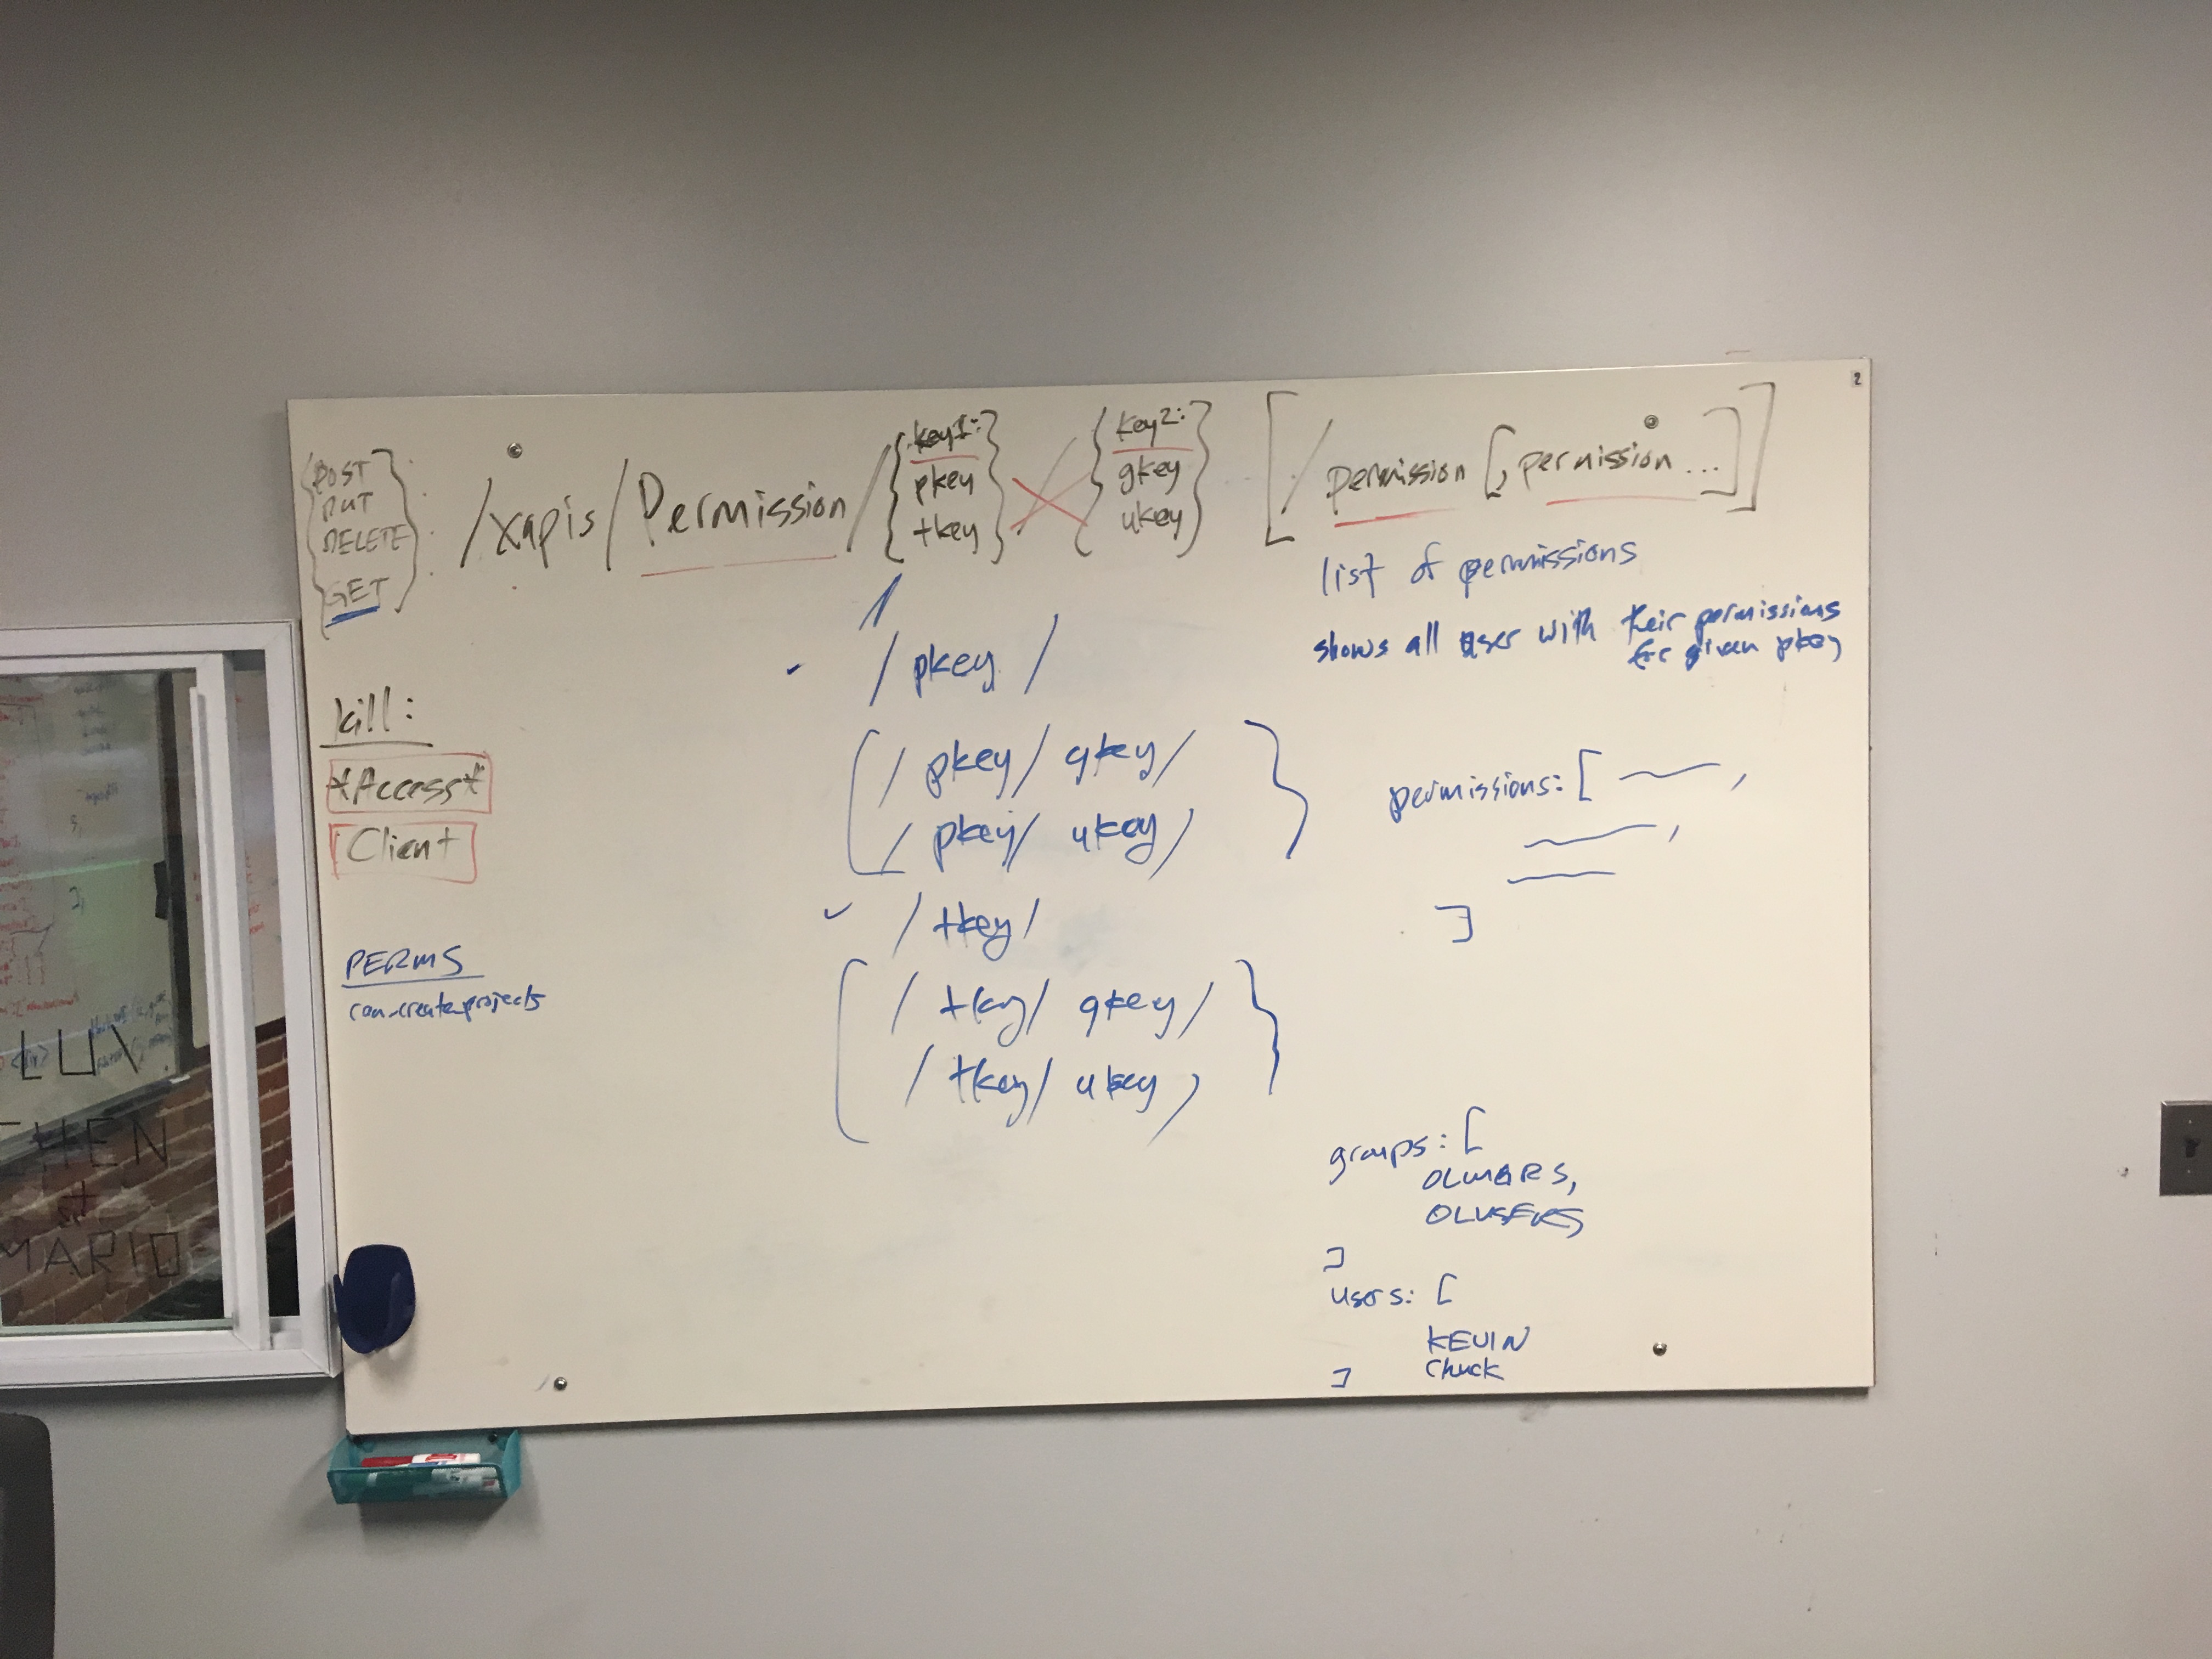 2
{POST
PUT
DELETE
GET} : /xapis/Permission/ {key1:
pkey
tkey} / {key2:
gkey
ukey} [/ permission [, permission ...]]
list of permissions
shows all user with their permissions
for given pkey
/ pkey /
/ pkey / gkey /
/ pkey / ukey /
permissions: [ ,
,
]
/ tkey /
/ tkey / gkey /
/ tkey / ukey /
kill:
*Access*
Client
PERMS
can-create-projects
groups: [
OLUSERS
]
users: [
KEVIN
Chuck
]
LUV
MARIO